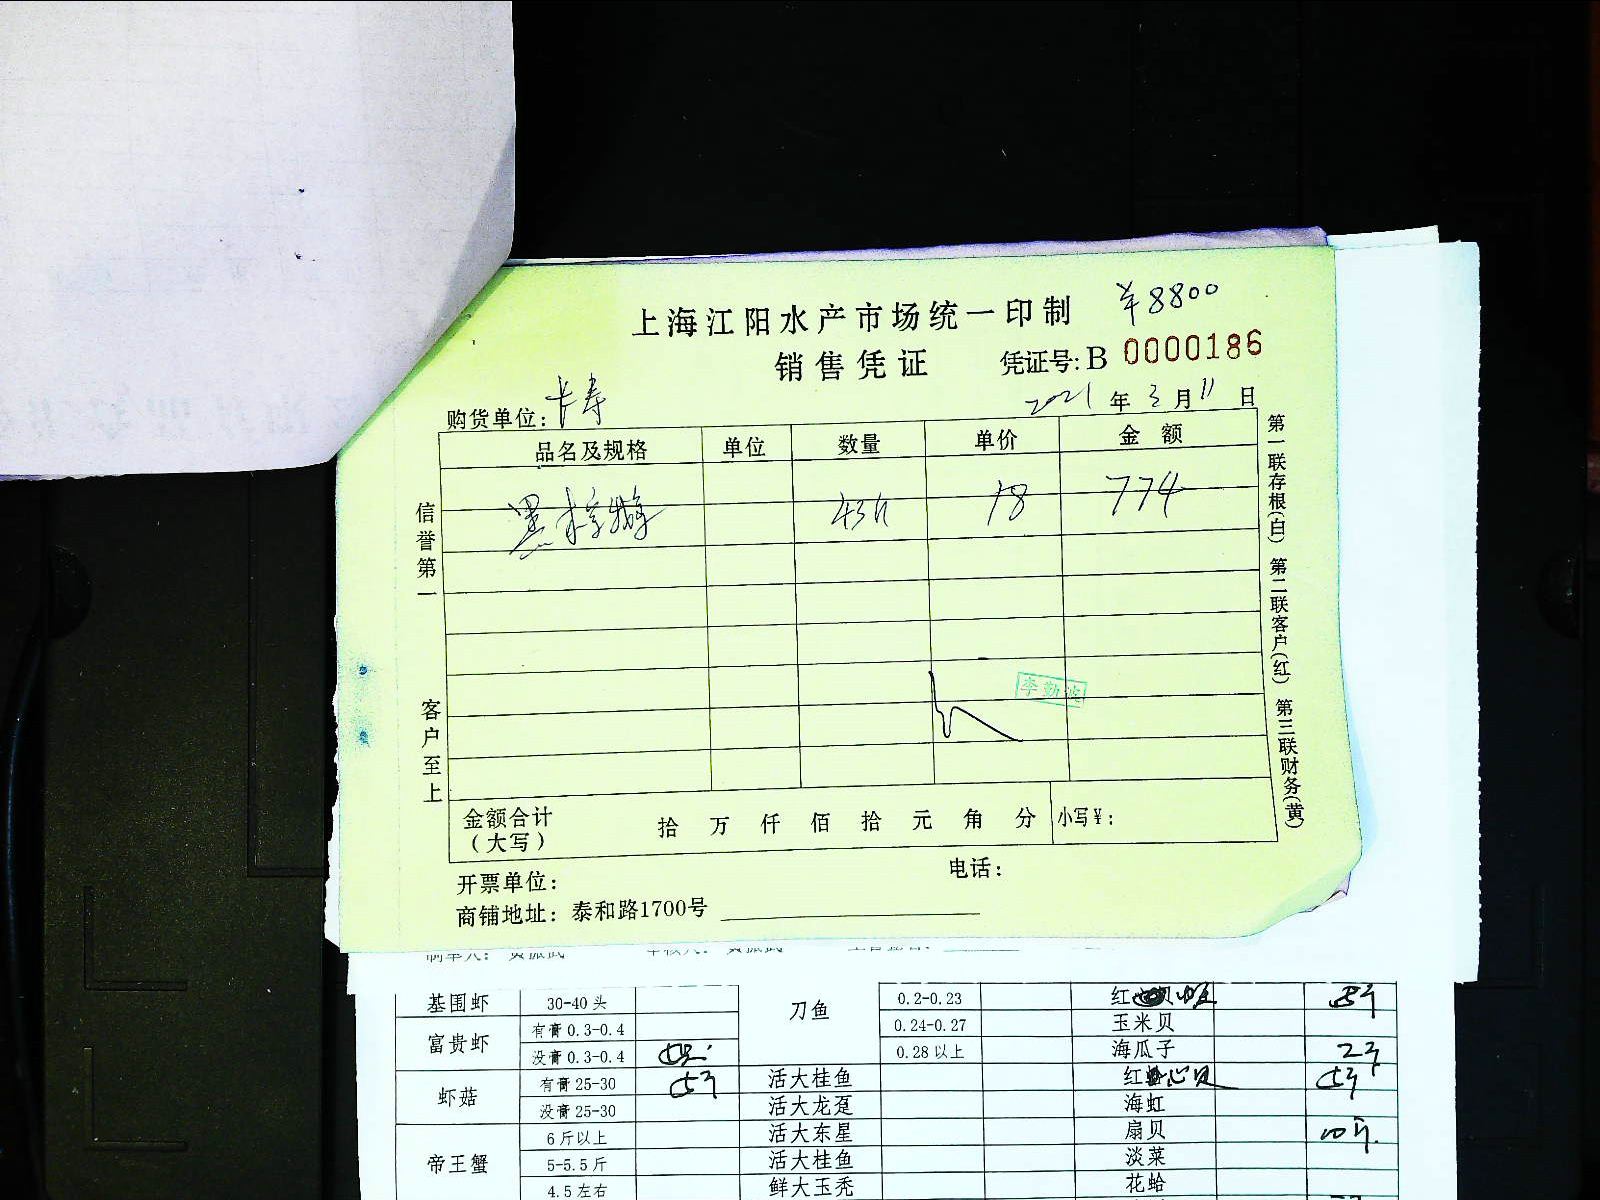 上海江阳水产市场统一印制 ¥8800
销售凭证 凭证号: B 0000186
购货单位: 2021 年 3 月 11 日
品名及规格 单位 数量 单价 金额
18 774
信誉第一
客户至上
第一联存根(白) 第二联客户(红) 第三联财务(黄)
金额合计(大写) 拾 万 仟 佰 拾 元 角 分 小写¥:
开票单位: 电话:
商铺地址: 泰和路1700号
基围虾 30-40头 刀鱼 0.2-0.23 红
富贵虾 有膏0.3-0.4 0.24-0.27 玉米贝
没膏0.3-0.4 0.28以上 海瓜子 2斤
虾菇 有膏25-30 5斤 活大桂鱼 红 心贝 5斤
没膏25-30 活大龙趸 海虹
帝王蟹 6斤以上 活大东星 扇贝 10斤
5-5.5斤 活大桂鱼 淡菜
4.5左右 鲜大玉秃 花蛤